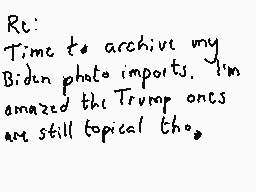 Re:
Time to archive my
Biden photo imports. I'm
amazed the Trump ones
are still topical tho,